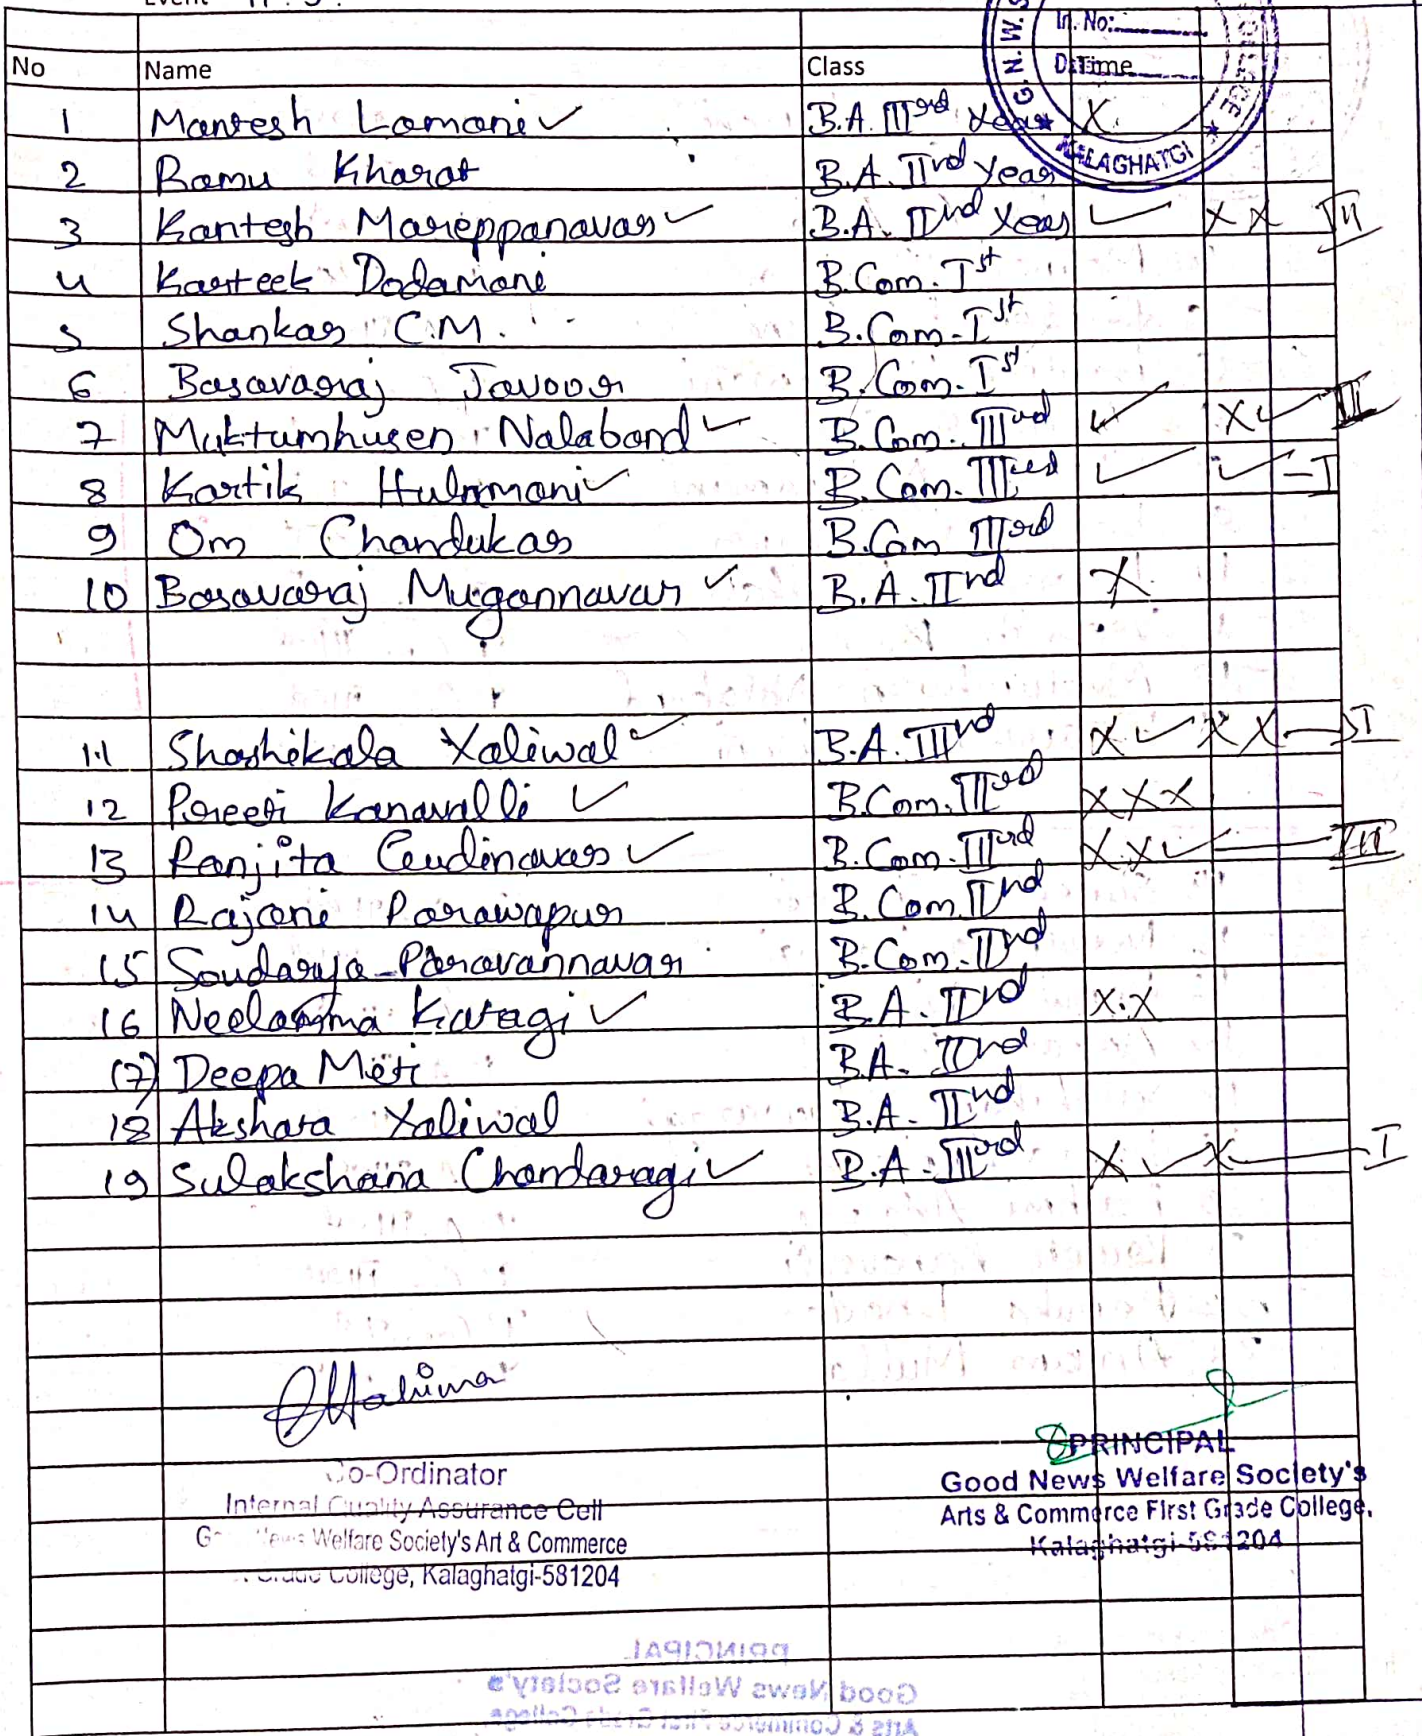 Event
G.N.W.S
In. No:
D.Time
KALAGHATGI
No Name Class
1 Mantesh Lamani ✓ B.A. IIIrd Year X
2 Ramu Kharat B.A. IInd Year
3 Kantesh Mareppanavar ✓ B.A. IInd Year ✓ X X III
4 Karteek Dodamani B.Com. Ist
5 Shankar C.M. B.Com-Ist
6 Basavaraj Javoor B.Com. Ist
7 Muktumhusen Nalaband ✓ B.Com. IIIrd ✓ X ✓ II
8 Kartik Hulamani ✓ B.Com. IIIrd ✓ ✓ - I
9 Om Chandukar B.Com IIIrd
10 Basavaraj Mugannavar ✓ B.A. IInd X
11 Shashikala Yaliwal ✓ B.A. IIIrd X ✓ X X - I
12 Preeti Kanavalli ✓ B.Com. IIIrd X X X
13 Ranjita ✓ B.Com. IIIrd X X ✓ III
14 Rajani Parawapur B.Com. IInd
15 Soudarya Paravannavar B.Com. IInd
16 Neelamma Katagi ✓ B.A. IInd X.X
17) Deepa Meti B.A. IInd
18 Akshata Yaliwal B.A. IInd
19 Sulakshana Chandaragi ✓ B.A. IIIrd X ✓ X - I
Co-Ordinator
Internal Quality Assurance Cell
News Welfare Society's Art & Commerce
Grade College, Kalaghatgi-581204
PRINCIPAL
Good News Welfare Society's
Arts & Commerce First Grade College.
Kalaghatgi-581204
PRINCIPAL
Good News Welfare Society's
Arts & Commerce First Grade College